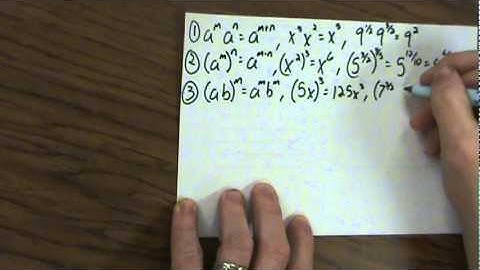 ① aᵐ aⁿ = aᵐ⁺ⁿ, x³ x² = x⁵, 9^(1/2) 9^(3/2) = 9²
② (aᵐ)ⁿ = aᵐ·ⁿ, (x²)³ = x⁶, (5^(3/2)) = 5^(12/10) =
③ (ab)ᵐ = aᵐbᵐ, (5x)³ = 125x³, (7